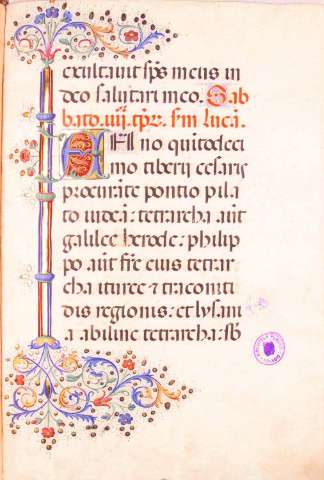 exultauit sps meus in
deo salutari meo. Sab
bato. iiij. tpr. sm luca.
Anno quitodeci
mo tiberij cesaris
procurãte pontio pila
to iudeã: tetrarcha aũt
galilee herode: philip
po aũt fr̃e eius tetrar
cha ituree ⁊ traconiti
dis regionis: et lysani
a abiline tetrarcha: sb